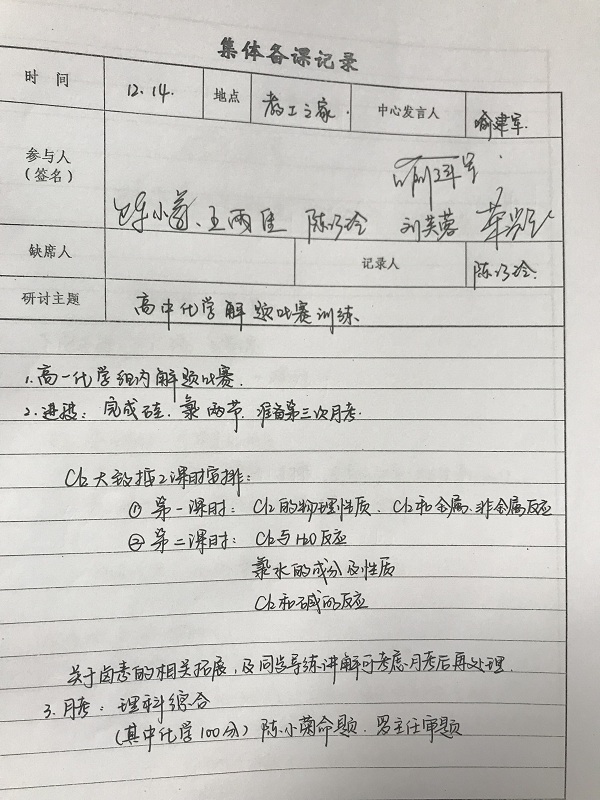 集体备课记录
时 间 12.14. 地点 教工之家. 中心发言人 喻建军.
参与人
(签名)
陈小菊、王雨佳 陈巧玲 刘芙蓉
缺席人 记录人 陈巧玲.
研讨主题 高中化学解题比赛训练.
1.高一化学组内解题比赛.
2.进程: 完成硅.氯两节.准备第三次月考.
Cl2大致按2课时安排:
① 第一课时: Cl2的物理性质. Cl2和金属.非金属反应
② 第二课时: Cl2与H2O反应
氯水的成分及性质
Cl2和碱的反应
关于卤素的相关拓展,及同步导练讲解可考虑月考后再处理.
3.月考: 理科综合
(其中化学100分) 陈小菊命题.罗主任审题